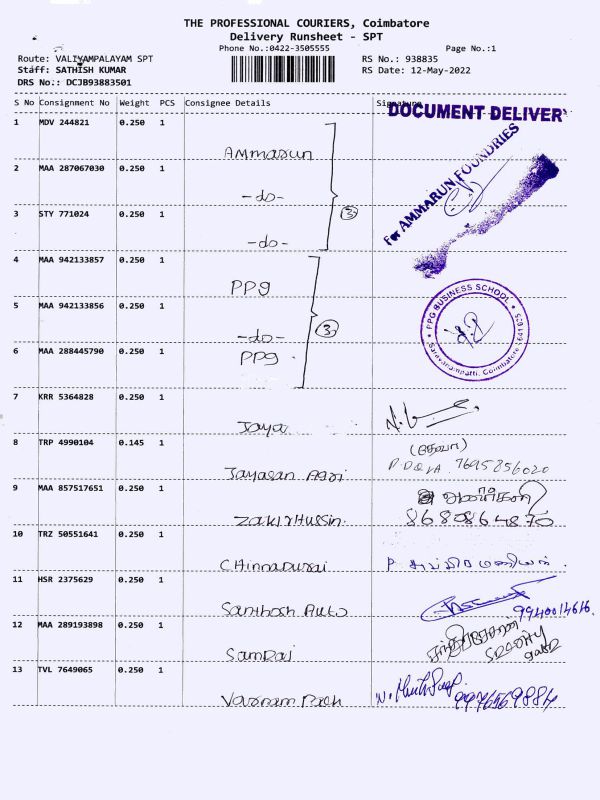 THE PROFESSIONAL COURIERS, Coimbatore
Delivery Runsheet - SPT
Phone No.:0422-3505555
Page No.:1
Route: VALIYAMPALAYAM SPT
RS No.: 938835
Staff: SATHISH KUMAR
RS Date: 12-May-2022
DRS No.: DCJB93883501
S No Consignment No Weight PCS Consignee Details Signature
DOCUMENT DELIVER
1 MDV 244821 0.250 1
Ammarun
For AMMARUN FOUNDRIES
2 MAA 287067030 0.250 1
-do-
3 STY 771024 0.250 1
-do-
(3)
4 MAA 942133857 0.250 1
PPg
PPG BUSINESS SCHOOL
Saravanampatti, Coimbatore-641 035
5 MAA 942133856 0.250 1
-do-
(3)
6 MAA 288445790 0.250 1
PPg
7 KRR 5364828 0.250 1
Jaya
8 TRP 4990104 0.145 1
Jayasan Agri
7695856020
9 MAA 857517651 0.250 1
Zakir Hussin
8680864870
10 TRZ 50551641 0.250 1
Chinnadurai
11 HSR 2375629 0.250 1
Santhosh Auto
9940014616.
12 MAA 289193898 0.250 1
Samraj
13 TVL 7649065 0.250 1
9976569884